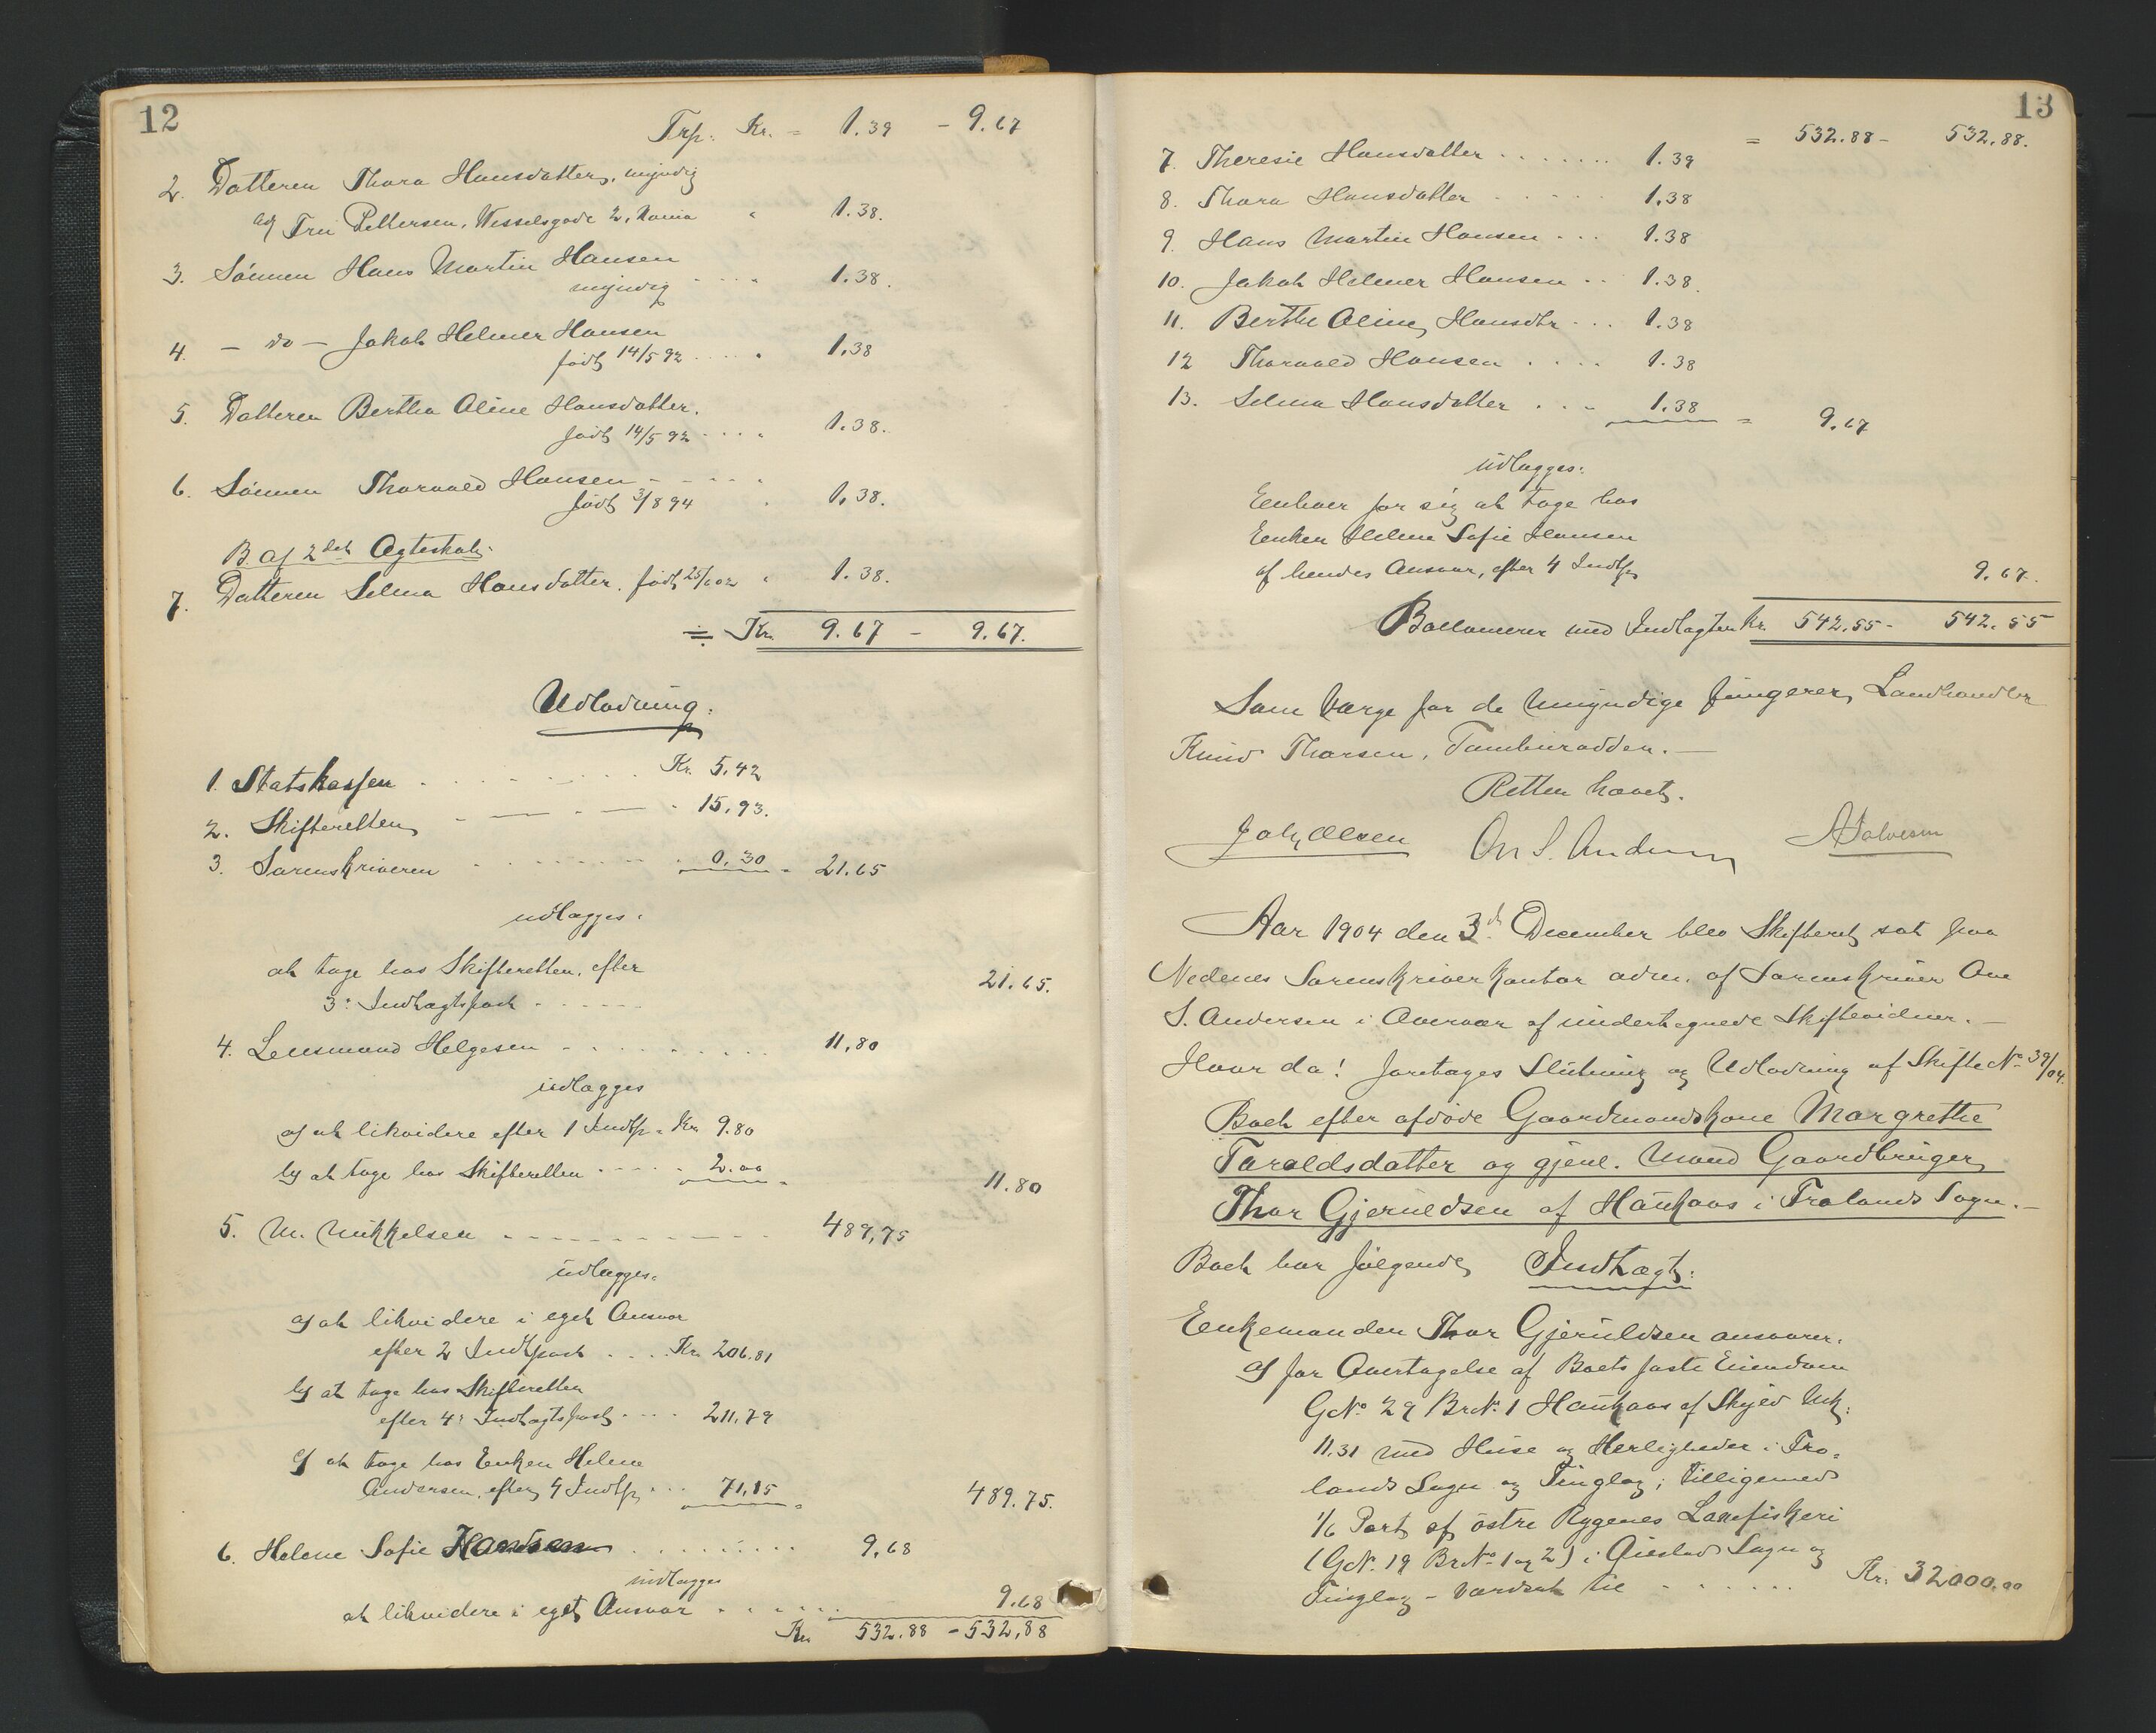 12
Trp. Kr. = 1.39 - 9.67
2. Datteren Thora Hansdatter, myndig
adr Fru Pettersen, Wesselsgade 2, Xania " 1.38.
3. Sönnen Hans Martin Hansen
myndig . . . " 1.38.
4. - do - Jakob Helmer Hansen
född 14/5 92 . . . . " 1.38
5. Datteren Bertha Oline Hansdatter.
född 14/5 92 . . . " 1.38.
6. Sönnen Thorvald Hansen - - - -
född 3/8 94 " 1.38.
B. af 2det Ægteskab.
7. Datteren Selma Hansdatter. född 25/6 02 " 1.38.
= Kr. 9.67 - 9.67.
Udlodning:
1. Statskassen . . . . . . Kr. 5,42
2. Skifteretten - - - - " 15,93.
3. Sorenskriveren . . . . . . . 0.30 = 21.65
udlægges:
at tage hos Skifteretten, efter
3: Indtægtspost - - - - 21.65.
4. Lensmand Helgesen - . . . . . . . . 11,80
udlægges
a) at likvidere efter 1 Indtp. Kr. 9.80
b) at tage hos Skifteretten . - - - . 2.00 =
11.80
5. M. Mikkelsen - - - - - - - - - - 489,75
udlægges:
a) at likvidere i eget Ansvar
efter 2 Indtpost . . . . Kr. 206.81
b) at tage hos Skifteretten
efter 4: Indtægtspost . . . 211,79
c) at tage hos Enken Helene
Andersen, efter 4 Indtp. . . . 71,15 =
489.75.
6. Helene Sofie Hansen . . . . . . . . . 9,68
udlægges
at likvidere i eget Ansvar . . . . . . 9.68
Kr. 532.88 - 532,88
13
= 532.88 - 532,88.
7. Theresie Hansdatter . . . . . . . 1.39
8. Thora Hansdatter . . . . . 1,38
9. Hans Martin Hansen . . . 1.38
10. Jakob Helmer Hansen . . 1.38.
11. Berthe Oline Hansdtr . . . 1.38
12 Thorvald Hansen . . . . 1.38
13. Selma Hansdatter . . . 1.38 = 9.67
udlægges:
Eenhver for sig at tage hos
Enken Helene Sofie Hansen
af hendes Ansvar, efter 4 Indtp 9.67.
Ballancerer med Indtægten Kr. 542,55 - 542.55
Som Værge for de Umyndige fungerer Landhandler
Knud Thorsen, . -
Retten hævet.
Joh, Olsen Ove S. Andersen A Salvesen
Aar 1904 den 3d December blev Skifteret sat paa
Nedenes Sorenskriverkontor adm. af Sorenskriver Ove
S. Andersen i Overvær af undertegnede Skiftevidner. -
Hvor da! foretages Slutning og Udlodning af Skifte No 39/04.
Boet efter afdöde Gaardmandskone Margrethe
Taraldsdatter og gjenl. Mand Gaardbruger
Thor Gjeruldsen af Haukaas i Frolands Sogn. -
Boet har fölgende Indtægt:
Enkemanden Thor Gjeruldsen ansvarer.
a) for Overtagelse af Boets faste Eiendom
GNo 29 BrNo 1 Haukaas af Skyld Mk:
11.31 med Huse og Herligheder i Fro=
lands Sogn og Tinglag; tilligemed
1/6 Part af östre Rygenes Laxefiskeri
(GNo. 19 BrNo 1 og 2) i Öiestad Sogn og
Tinglag - værdsat til - . . . . . Kr. 32000,00